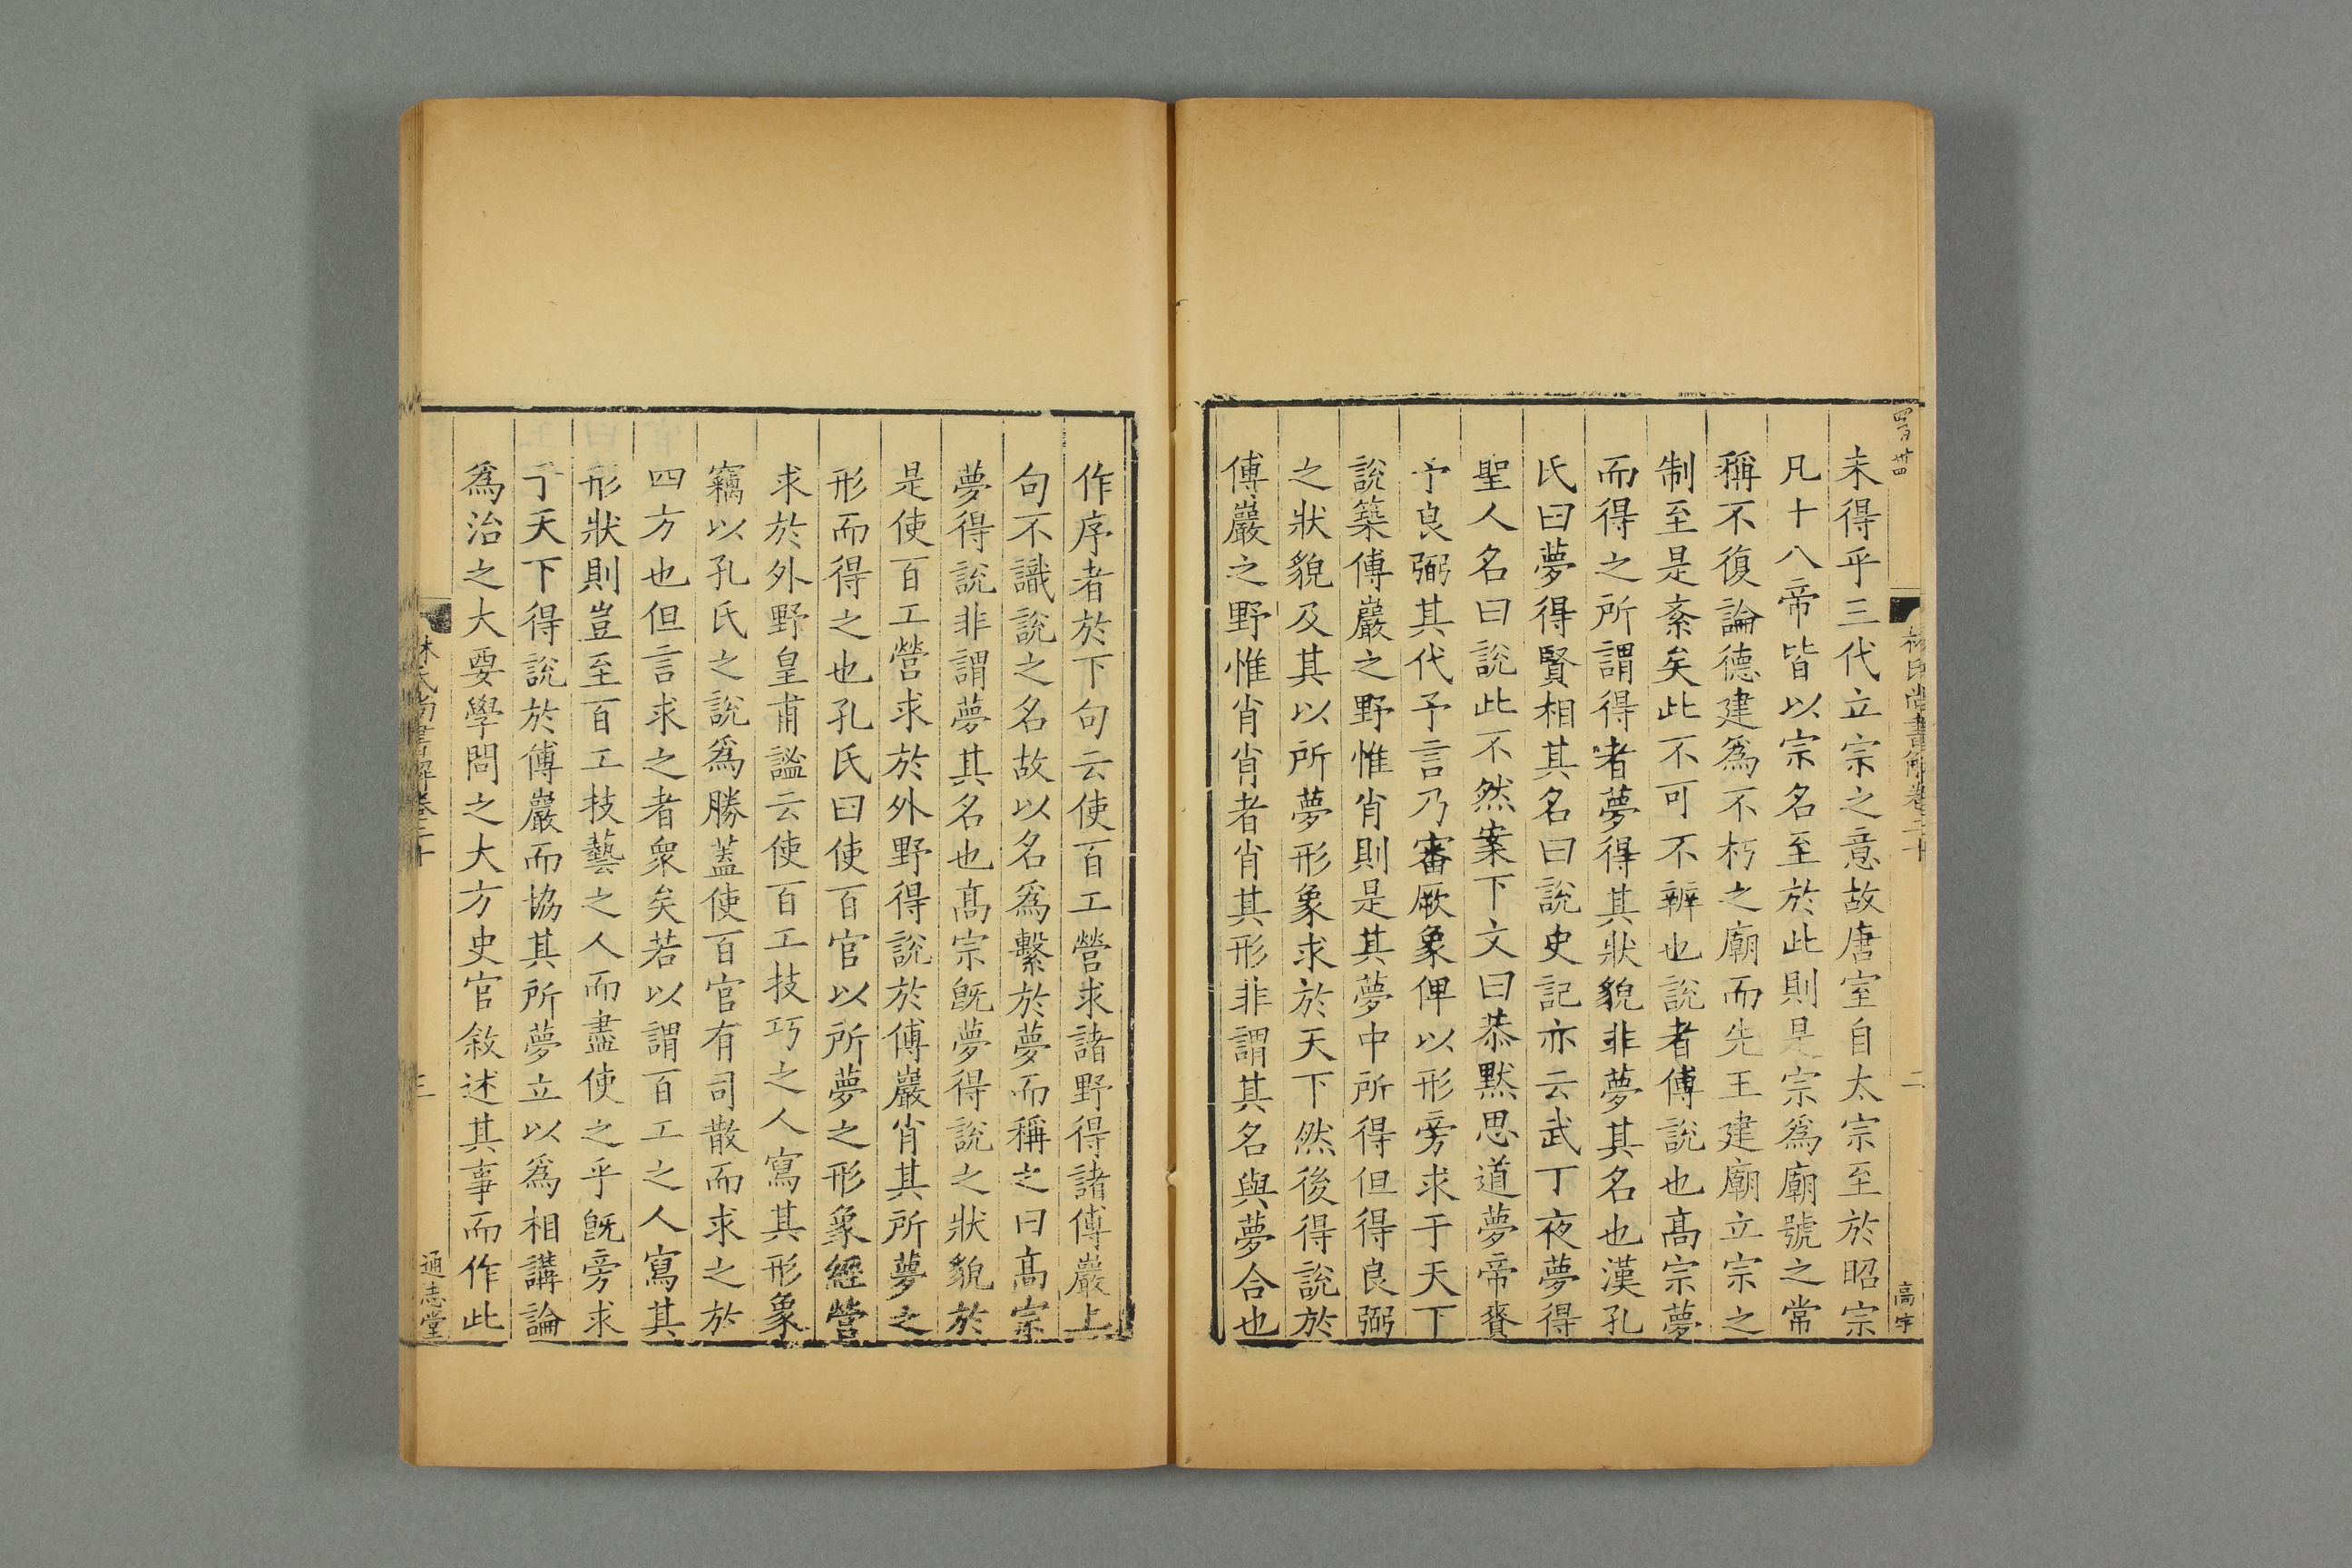 林氏尚書解卷二十
二
未得乎三代立宗之意故唐室自太宗至於昭宗
凡十八帝皆以宗名至於此則是宗爲廟號之常
稱不復論德建爲不朽之廟而先王建廟立宗之
制至是紊矣此不可不辨也說者傅說也高宗夢
而得之所謂得者夢得其狀貌非夢其名也漢孔
氏曰夢得賢相其名曰說史記亦云武丁夜夢得
聖人名曰說此不然案下文曰恭默思道夢帝賚
予良弼其代予言乃審厥象俾以形旁求于天下
說築傅巖之野惟肖則是其夢中所得但得良弼
之狀貌及其以所夢形象求於天下然後得說於
傅巖之野惟肖肖者肖其形非謂其名與夢合也
作序者於下句云使百工營求諸野得諸傅巖上
句不識說之名故以名爲繫於夢而稱之曰高宗
夢得說非謂夢其名也高宗旣夢得說之狀貌於
是使百工營求於外野得說於傅巖肖其所夢之
形而得之也孔氏曰使百官以所夢之形象經營
求於外野皇甫謐云使百工技巧之人寫其形象
竊以孔氏之說爲勝蓋使百官有司散而求之於
四方也但言求之者衆矣若以謂百工之人寫其
形狀則豈至百工技藝之人而盡使之乎旣旁求
于天下得說於傅巖而協其所夢立以爲相講論
爲治之大要學問之大方史官敘述其事而作此
林氏尚書解卷二十
三
通志堂